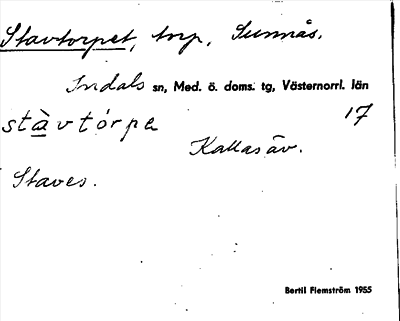 Stavtorpet, torp, Sunnås.
Indals sn, Med. ö. doms. tg, Västernorrl. län
stàvtórpe 17
Kallas äv.
Staves.
Bertil Flemström 1955